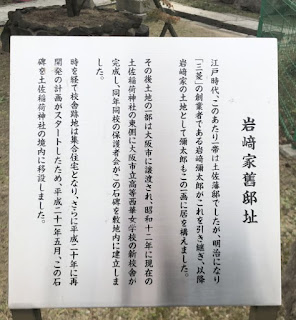 岩﨑家舊邸址
江戸時代、このあたり一帯は土佐藩邸でしたが、明治になり
「三菱」の創業者である岩崎彌太郎がこれを引き継ぎ、以降
岩崎家の土地として彌太郎もこの一画に居を構えました。
その後土地の一部は大阪市に譲渡され、昭和十二年に現在の
土佐稲荷神社の東側に大阪市立高等西華女学校の新校舎が
完成し、同年同校の保護者会がこの石碑を敷地内に建立しま
した。
時を経て校舎跡地は集合住宅となり、さらに平成二十年に再
開発の計画がスタートしたため、平成二十一年五月、この石
碑を土佐稲荷神社の境内に移設しました。